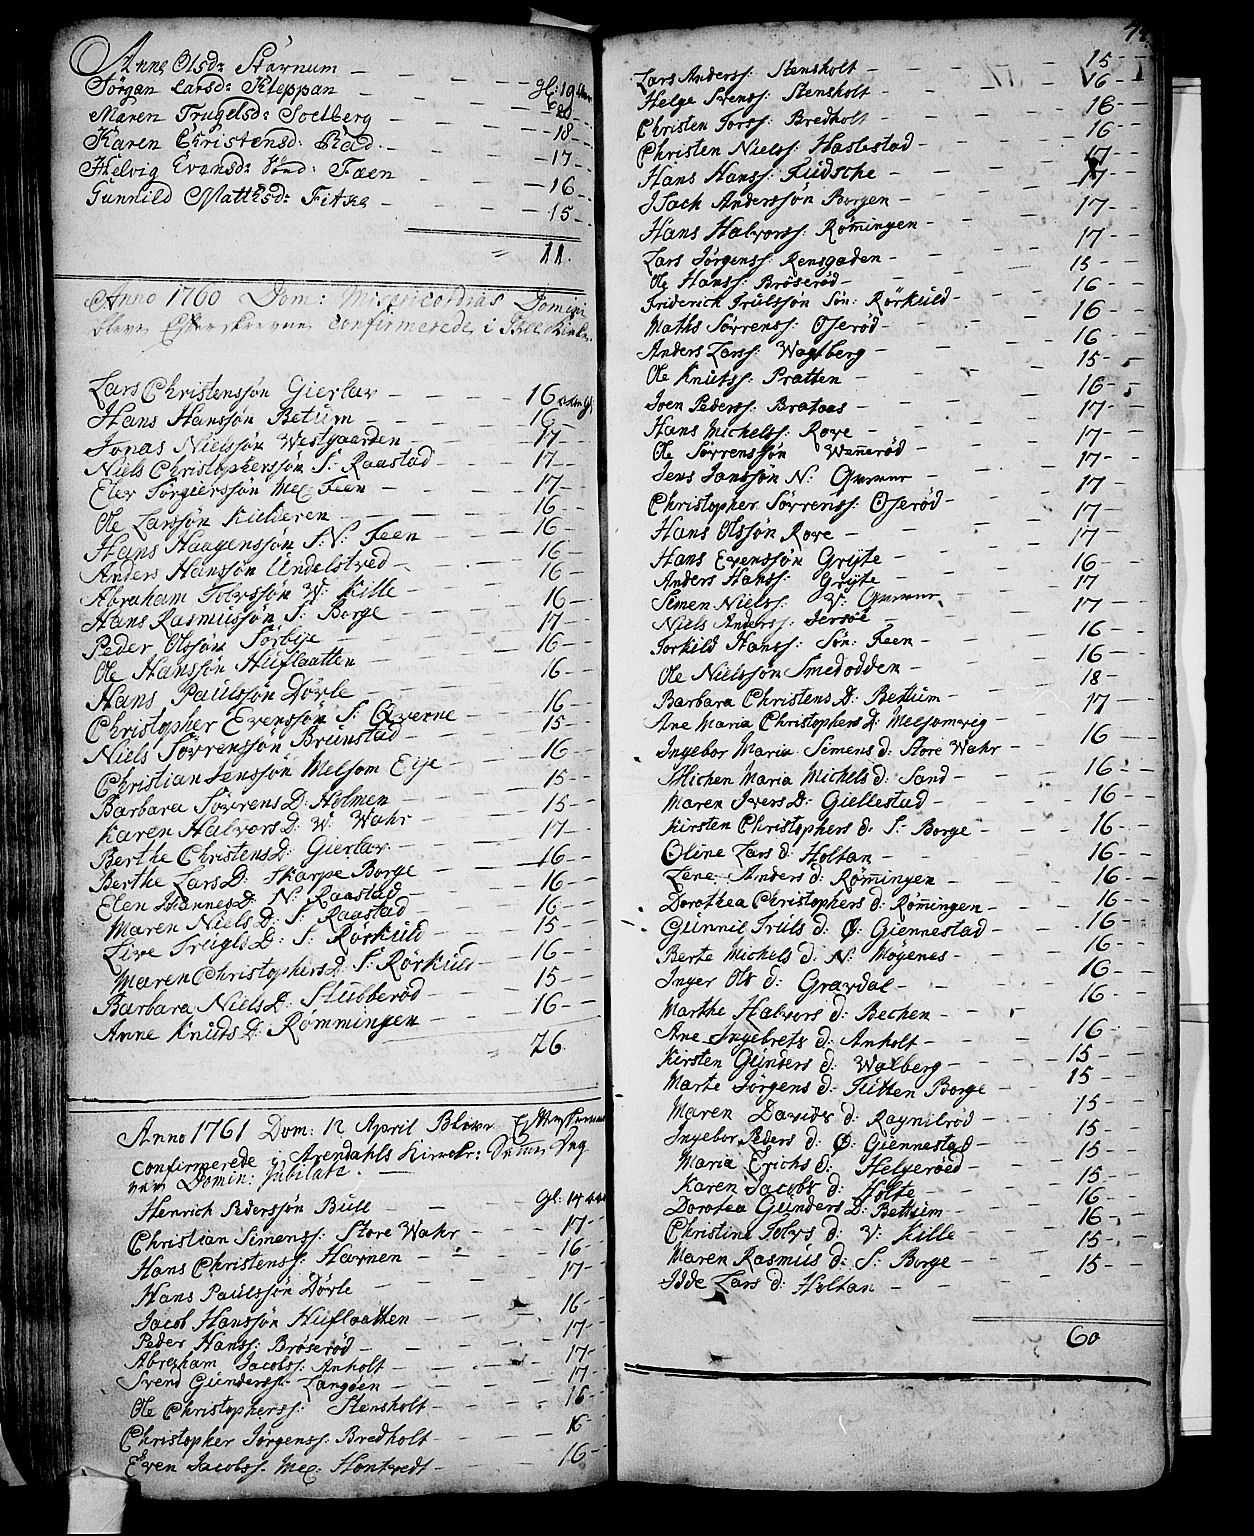 Anne Olsd: Skarnum — gl: 19
Jørgen Larsd: Kleppan — 20
Maren Trugelsd: Soelberg — 18
Karen Christensd: Rad — 17
Helvig Evensd: Sønd: Faen — 16
Gunnild Matthisd: — 15
= 11.
Anno 1760 Dom: Misericordias Domini
bleve Efterskrevne Confirmerede i
Lars Christenssøn Gierlav — 16
Hans Hanssøn Betum — 16
Jonas Nielssøn Westgaarden — 17
Niels Christopherssøn S: Raastad — 17
Elev Jørgierssøn Mel: Feen — 17
Ole Larssøn Kielderen — 16
Hans Haagenssøn S: V: Feen — 16
Anders Hanssøn Undelstved — 16
Abraham Tolvssøn W: Kille — 16
Hans Rasmussøn S: Borge — 16
Peder Olssøn Sørbye — 17
Ole Hanssøn Huflaatten — 16
Hans Paulssøn Dørle — 16
Christopher Evenssøn S: Qverne — 16
Niels Sørrenssøn Brunstad — 15
Christian Jenssøn Melsom Eye — 16
Barbara Sørrens D: Holmen — 15
Karen Halvors D: W: Wahr — 15
Berthe Christens D: Gierlav — 17
Berthe Lars D: Skarpe Borge — 16
Elen Hannes D: N: Raastad — 16
Maren Niels D: S: Raastad — 16
Live Trugls D: S: Rørkuld — 15
Maren Christophers D: S: Rørkuld — 16
Barbara Niels D: Stubberød — 15
Anne Knuds D: Rømmingen — 16
26
Anno 1761 Dom: 12 April Bleve Efterskrevne
Confirmerede i Arendahls Kircke:
Domin: Jubilate.
Henrich Pederssøn Bull — gl: 14
Christian Simenss: Store Wahr — 17
Hans Christenss: Havnen — 16
Hans Paulssøn Dørle — 17
Jacob Hanssøn Huflaatten — 16
Peder Hanss: Brøserød — 17
Abraham Jacobs: Anholt — 17
Svend Gunderss: Langøen — 17
Ole Christopherss: Stensholt — 16
Christopher Jørgenss: Bredholt — 16
Even Jacobss: Mel: Hontvedt — 16
Lars Anderss: Stensholt — 15
Helge Svenss: Stensholt — 16
Christen Torss: Bredholt — 16
Christen Nielss: Haslestad — 16
Hans Hanss: Fudsche — 17
Isach Anderssøn Borgen — 17
Hans Halvorss: Rømingen — 17
Lars Jørgenss: Rensgaden — 17
Ole Hanss: Brøserød — 15
Friderich Trulssøn Søn: Rørkuld — 16
Maths Sørrenss: Oserød — 16
Anders Larss: Wagberg — 16
Ole Knutss: Pratten — 15
Iven Pederss: Brataas — 16
Hans Michelss: Rove — 17
Ole Sørrenssøn Wennerød — 17
Jens Janssøn N: Qverne — 17
Christopher Sørrenss: Oserød — 17
Hans Olssøn Rove — 17
Hans Evenssøn Gryte — 17
Anders Hanss: Gryte — 16
Simen Nielss: V: Qverne — 17
Niels Anderss: Jersøe — 17
Torkild Hanss: Søn: Feen — 16
Ole Nielssøn Smedodden — 16
Barbara Christens D: Bettum — 18
Ane Maria Christophers D: Melsomvig — 17
Ingebor Maria Simens d: Store Wahr — 16
Michen Maria Michels d: Sand — 16
Maren Ivers D: Giellestad — 16
Kirsten Christophers d: S: Borge — 16
Oline Lars d: Holtan — 16
Lene Anders d: Rømingen — 16
Dorothea Christophers d: Rømingen — 16
Gunnil Truls d: Ø: Giennestad — 16
Berte Michels d: N: Møgenes — 16
Inger Ols d: Gravdal — 16
Marthe Halvors d: Bechen — 16
Ane Ingebrets d: Anholt — 16
Kirsten Gunders d: Walberg — 15
Marte Jørgens d: Tutten Borge — 15
Maren Davids d: Raynilrød — 15
Ingebor Peders d: Ø: Giennestad — 15
Maria Erichs d: Helgerøed — 15
Karen Jacobs d: Holte — 15
Dorotea Gunders D: Bettum — 16
Christine Tolvs d: V: Kille — 16
Maren Rasmus d: S: Borge — 15
Idde Lars d: Holtan — 15
60